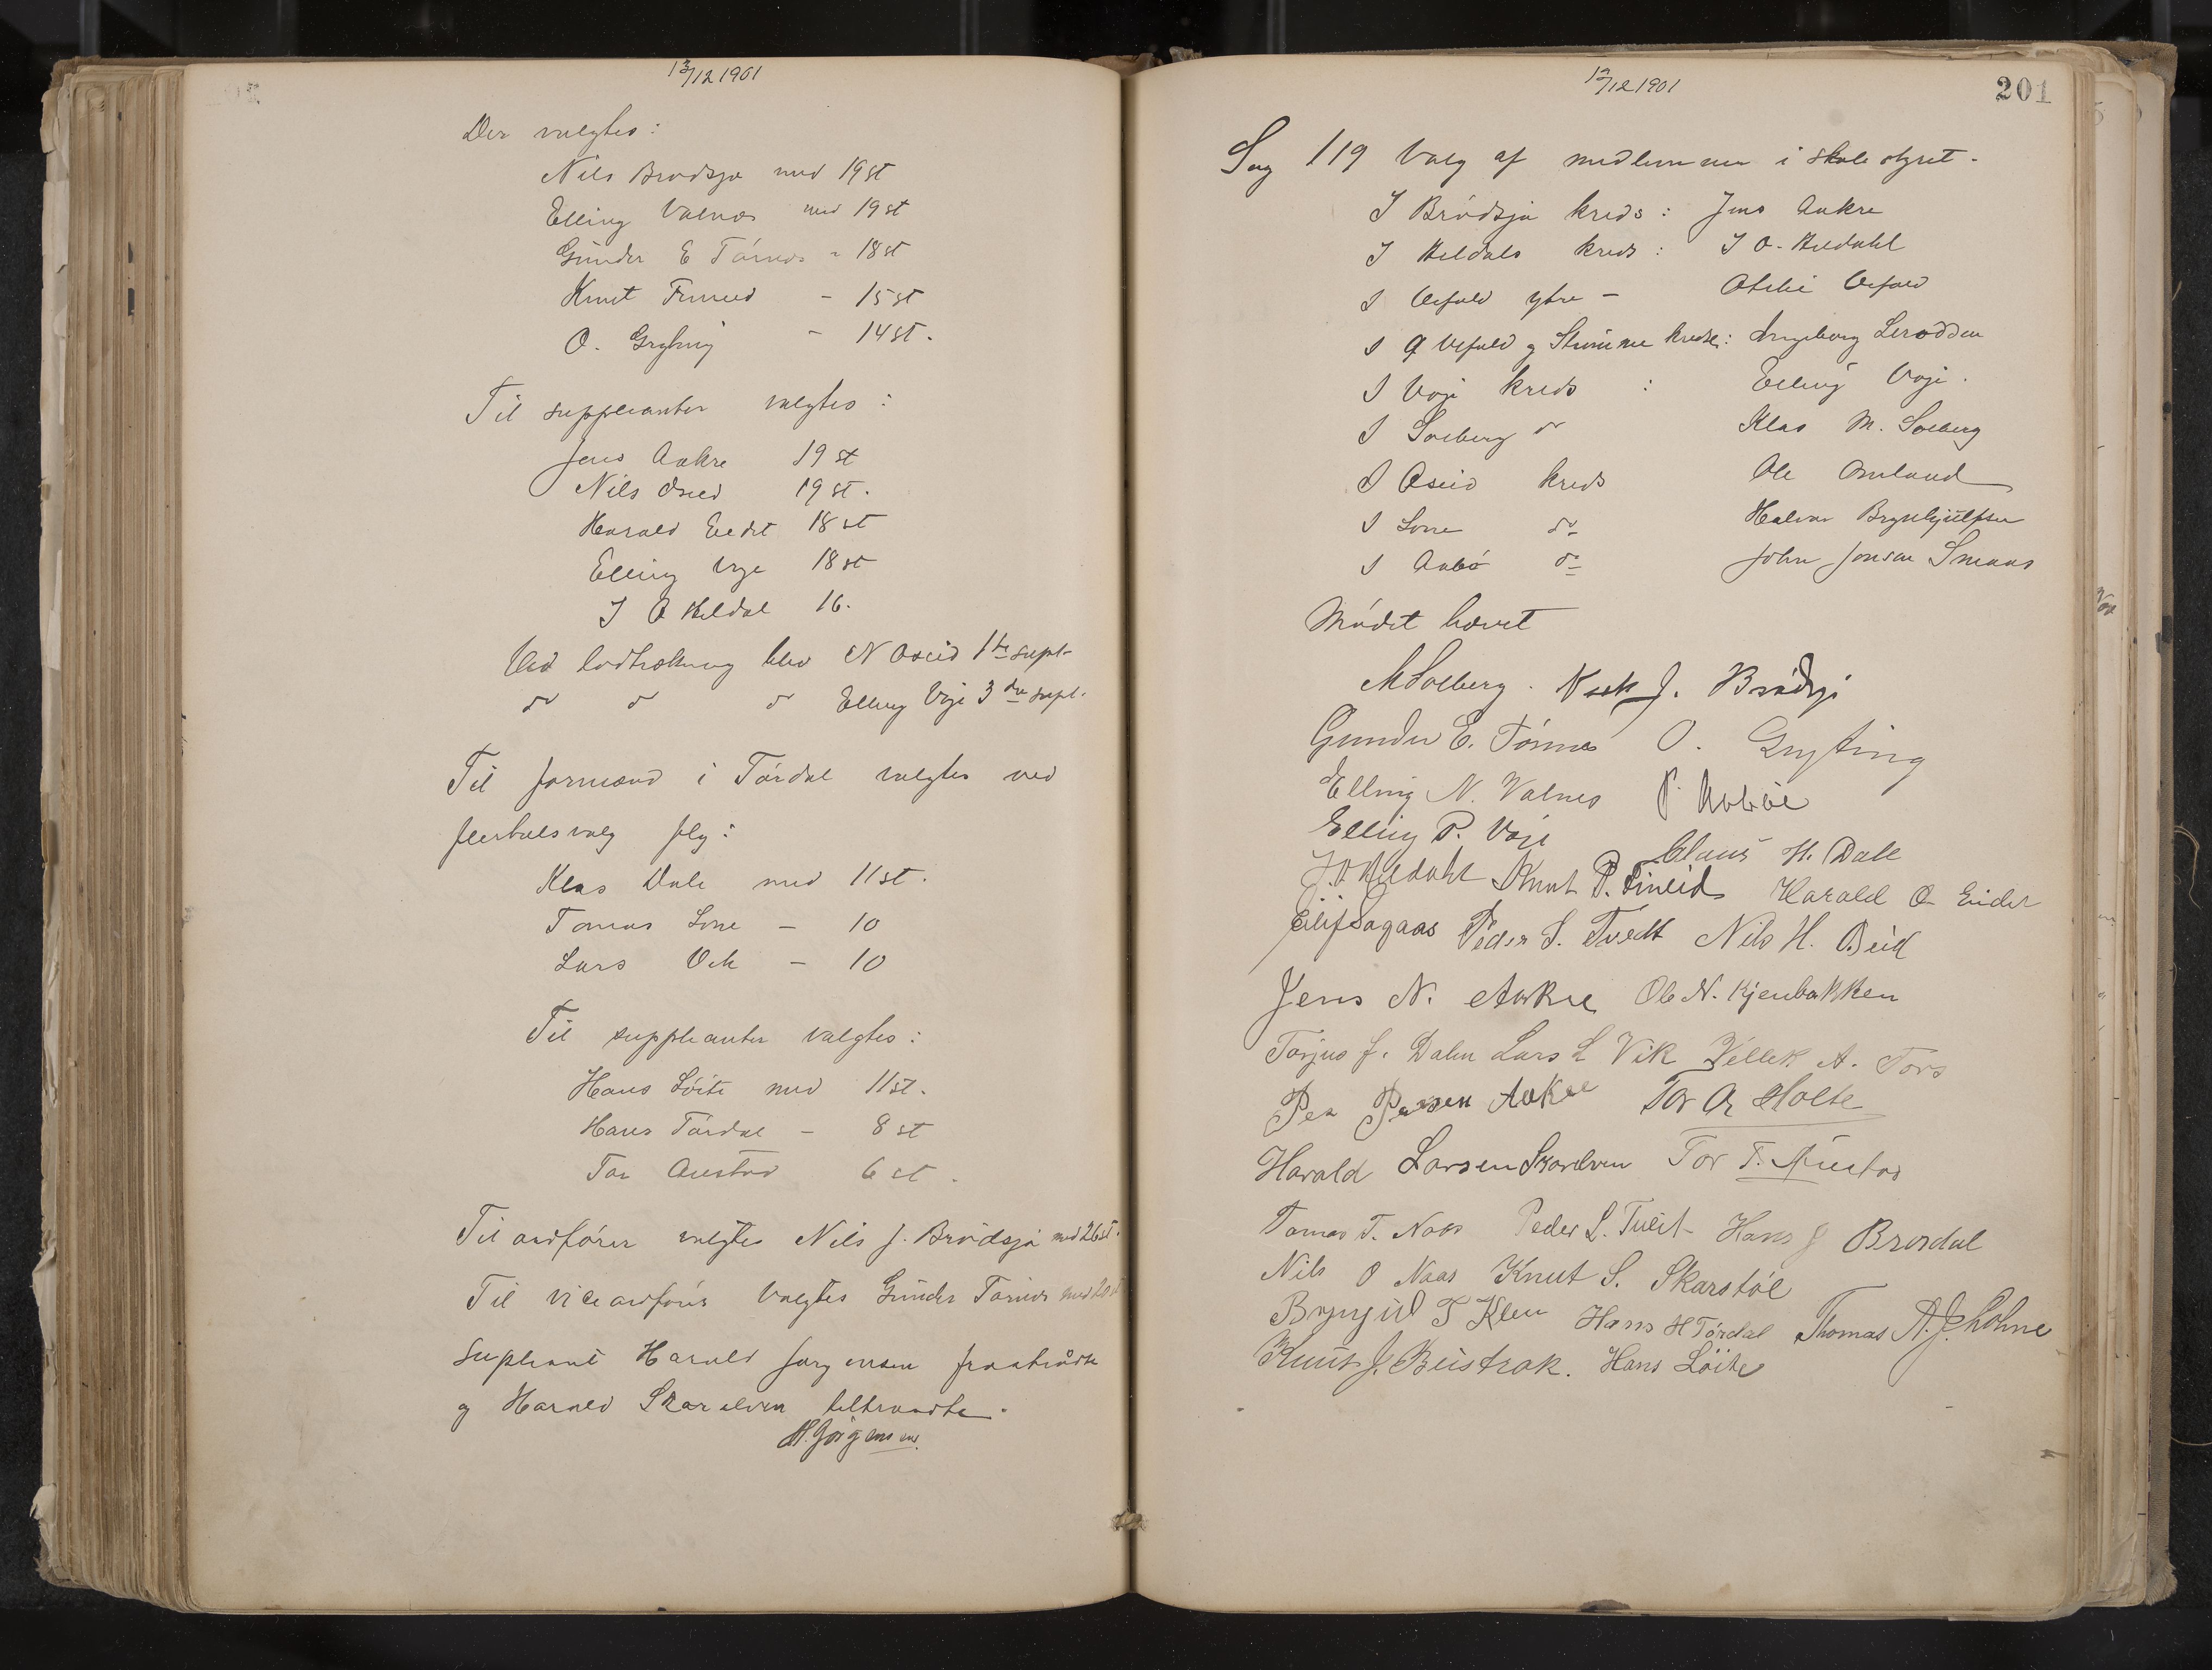 13/12 1901
Der valgtes:
Nils Brødsjø med 19 st
Elling Valnes med 19 st
Gunder E Tórnes - 18 st
Knut Fineid - 15 st
O. Gryting - 14 st.
Til suppleanter valgtes:
Jens Aakre 19 st
Nils Øseid 19 st.
Harald Eidet 18 st
Elling Voje 18 st
J O Heldal 16.
Ved lodtrækning blev N Øseid 1ste supl.
do do do Elling Voje 3die supl.
Til formænd i Tórdal valgtes ved
flertalsvalg flg:
Klas Dale med 11 st.
Tomas Lone - 10
Lars Vik - 10
Til suppleanter valgtes:
Hans Lóite med 11 st.
Hans Tórdal - 8 st
Tor Austad 6 st.
Til ordfórer valgtes Nils J. Bródsjø med 26 st.
Til viceordfórer valgtes Gunder Tórnes med
Supleant Harald Jørgensen fratrådte
og Harald Skarelven tiltraadte.
H. Jørgensen.
13/12 1901
201
Sag 119 Valg af medlemmer i skolestyret.
I Bródsjø kreds: Jens Aakre
I Heldals kreds: J O. Heldahl
I Vefald ytre - Vefald
I Ø Vefald og Strømme kredse: Ingeborg Lerodden
I Voje kreds : Elling Voje.
I Solberg do Klas M. Solberg
I Øseid kreds Ole Omland
I Lone do Halvor Brynhjulfsen
I Aabó do John Jonsen Smaas
Módet hævet
M Solberg. J. Bródsjø
Gunder E. Tórnes O. Gryting
Elling N. Valnes P. Aabøe
Elling P. Voje Claus H. Dale
J. O. Heldahl Knut P. Fineid Harald O Eidet
Eilif Sagaas Peder S. Tvedt Nils H. Øseid
Jens N. Aakre Ole N. Kjenbakken
Torjus J. Dalen Lars L Vik A. Tors
Per Persen Aakre Tor O. Holte
Harald Larsen Skarelven Tor T. Austad
Tomas T. Naas Peder L. Tveit Hans J Brørdal
Nils O Naas Knut S. Skarstøl
T Klem Hans H Tórdal Thomas A. J. Lohne
Knut J. Bustrak. Hans Löite